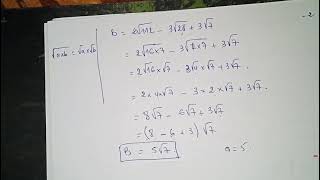 B = 2√112 − 3√28 + 3√7
√a×b = √a × √b
= 2√16×7 − 3√4×7 + 3√7
= 2√16×√7 − 3√4×√7 + 3√7.
= 2×4×√7 − 3×2×√7 + 3√7.
= 8√7 − 6√7 + 3√7
= (8 − 6 + 3)√7
B = 5√7 a = 5